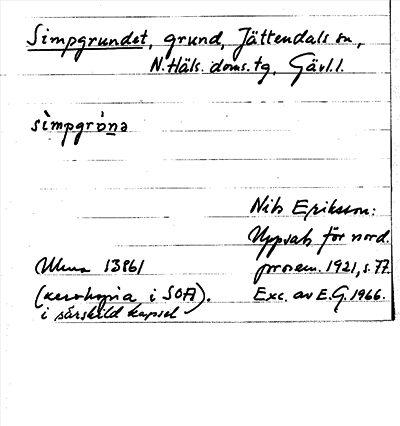 Simpgrundet, grund, Jättendals sn,
N. Häls. doms. tg, Gävl.l.
simpgròna
Nils Eriksson:
Uppsats för nord.
Uluna 13861 prosem. 1921, s. 77.
(xerokopia i SOFI). Exc. av E.G. 1966.
i särskild kapsel